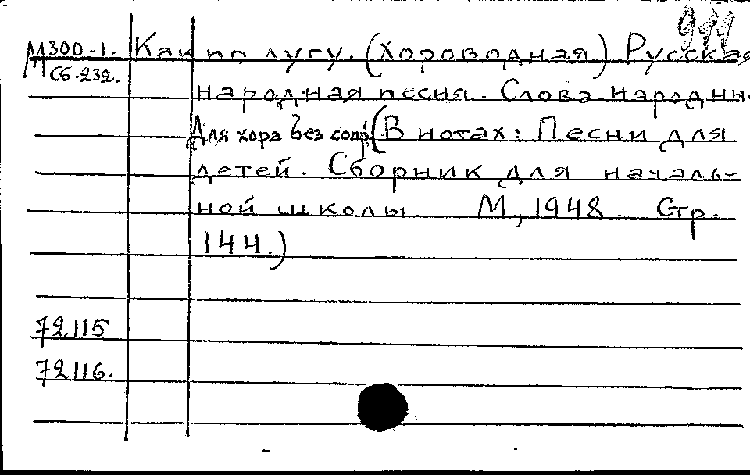 911
М300-1. Как по лугу. (Хороводная) Русская
Сб-232.
народная песня. Слова народны
Для хора без сопр. (В нотах: Песни для
детей. Сборник для началь-
ной школы М, 1948 Стр.
144.)
72115
72116.